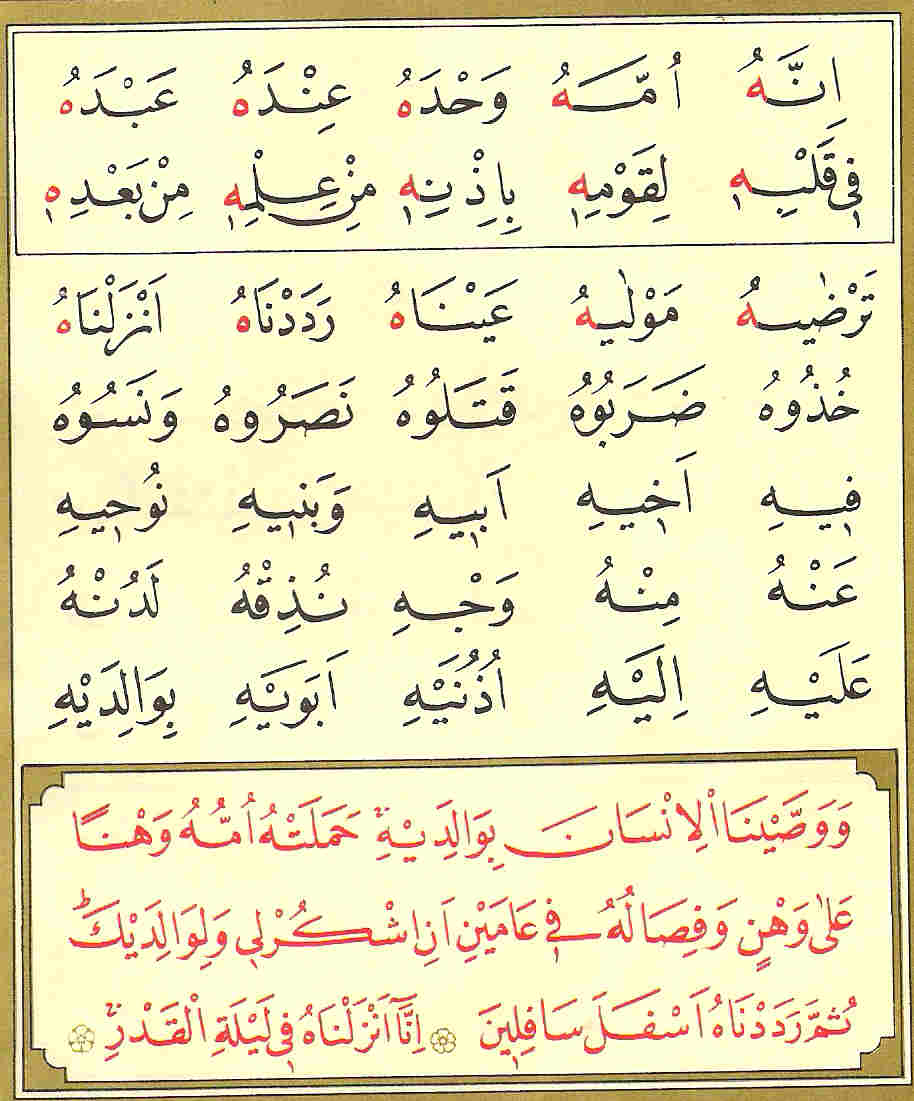 اِنَّهُ اُمَّهُ وَحْدَهُ عِنْدَهُ عَبْدَهُ
فِى قَلْبِهِ لِقَوْمِهِ بِاِذْنِهِ مِنْ عِلْمِهِ مِنْ بَعْدِهِ
تَرْضٰيهُ مَوْلٰيهُ عَيْنَاهُ رَدَدْنَاهُ اَنْزَلْنَاهُ
خُذُوهُ ضَرَبُوهُ قَتَلُوهُ نَصَرُوهُ وَنَسُوهُ
فِيهِ اَخِيهِ اَبِيهِ وَبَنِيهِ نُوحِيهِ
عَنْهُ مِنْهُ وَجْهِ نُذِقْهُ لَدُنْهُ
عَلَيْهِ اِلَيْهِ اُذُنَيْهِ اَبَوَيْهِ بِوَالِدَيْهِ
وَوَصَّيْنَا الْاِنْسَانَ بِوَالِدَيْهِۚ حَمَلَتْهُ اُمُّهُ وَهْنًا
عَلٰى وَهْنٍ وَفِصَالُهُ فِى عَامَيْنِ اَنِ اشْكُرْلِى وَلِوَالِدَيْكَۜ
ثُمَّ رَدَدْنَاهُ اَسْفَلَ سَافِلِينَ ۞ اِنَّٓا اَنْزَلْنَاهُ فِى لَيْلَةِ الْقَدْرِۚ ۞